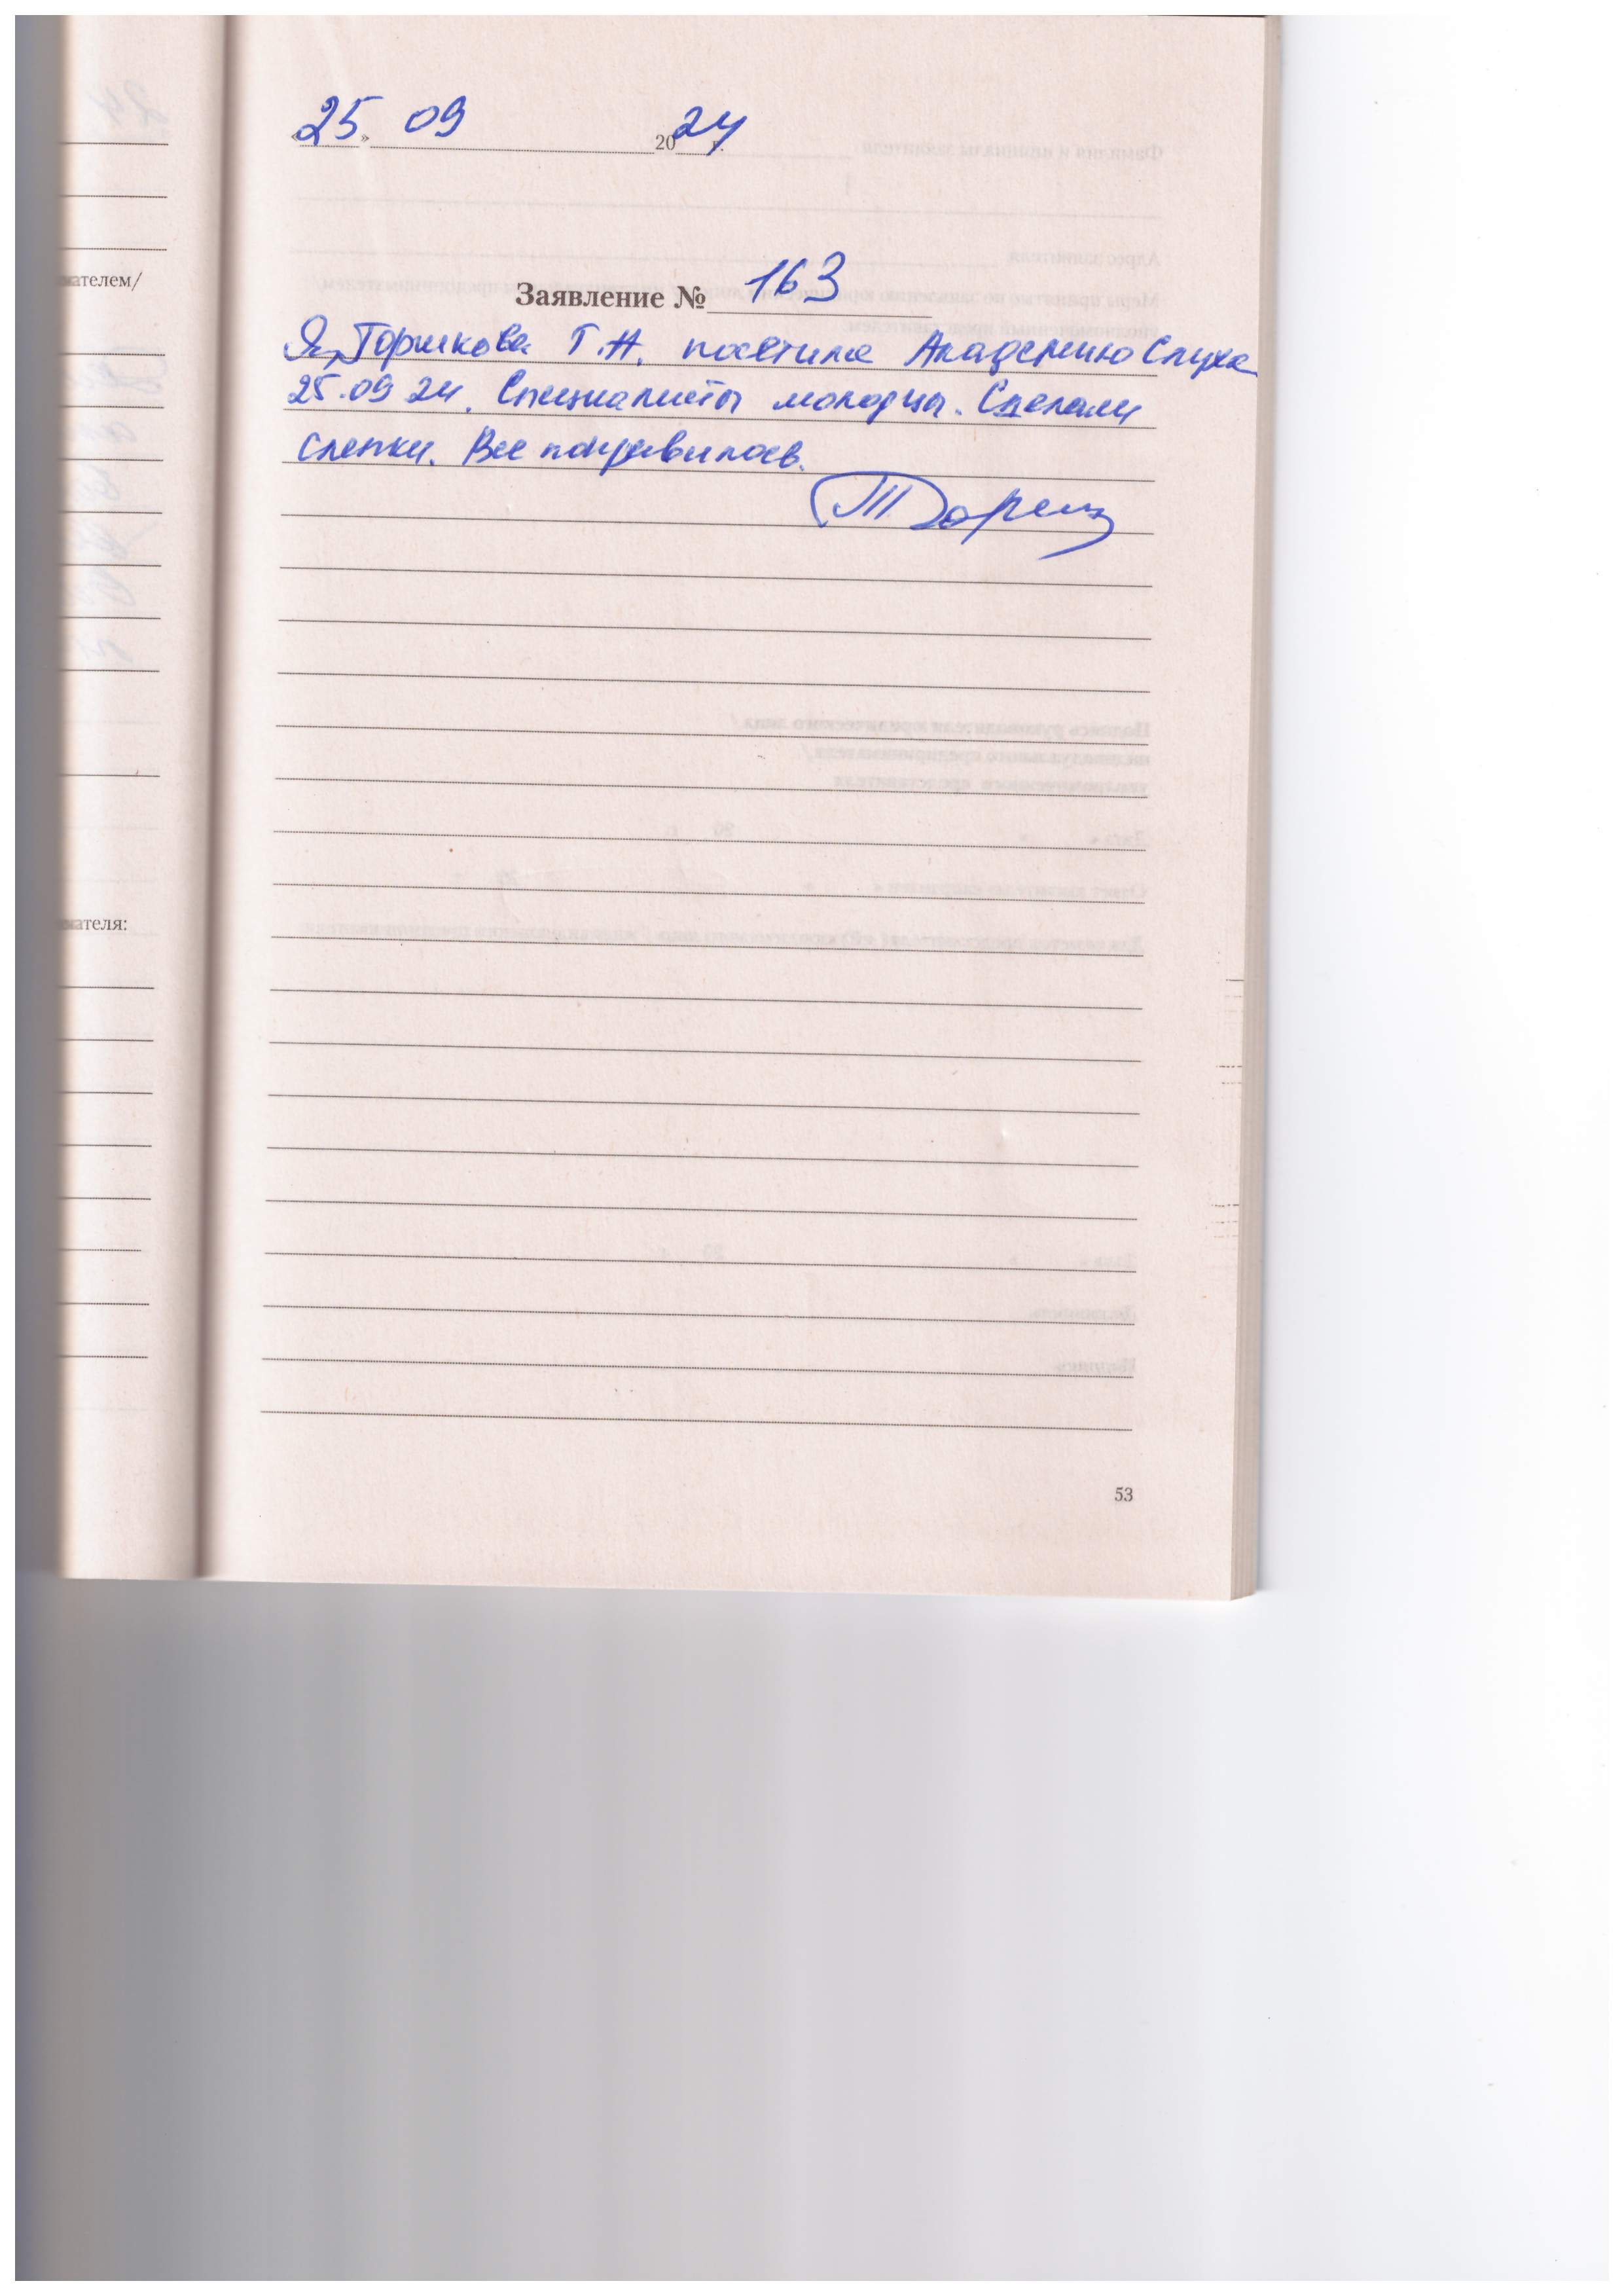 «25» 09 2024 г.
Заявление № 163
Я, Горшкова Т.Н. посетила Академию Слуха
25.09 24. Специалисты молодцы. Сделали
слепки. Все понравилось.
ателем/
ателя:
53